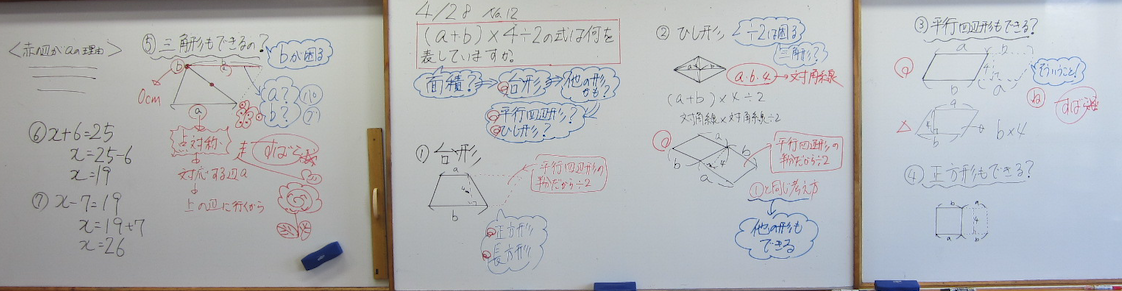 4/28 No.12
(a+b)×4÷2の式は何を
表していますか。
面積?
台形?
他の形
かも?
平行四辺形?
ひし形?
① 台形
a
b
平行四辺形の
÷2
正方形
長方形
② ひし形 2÷2は困る
三角形?
a・b・4→対角線
(a+b)×4÷2
対角線×対角線÷2
a
b
b
a
平行四辺形の
÷2
①と同じ考え方
他の形も
できる
③ 平行四辺形もできる?
a
b
4
a
b
そういうこと!
a
b
b×4
④ 正方形もできる?
a
b
a
b
<赤の辺がaの理由>
⑤ 三角形もできるの?
bが困る
b
0cm
a
a?
b?
点対称
対応する辺a
上の辺に行くから
⑥ x+6=25
x=25-6
x=19
⑦ x-7=19
x=19+7
x=26